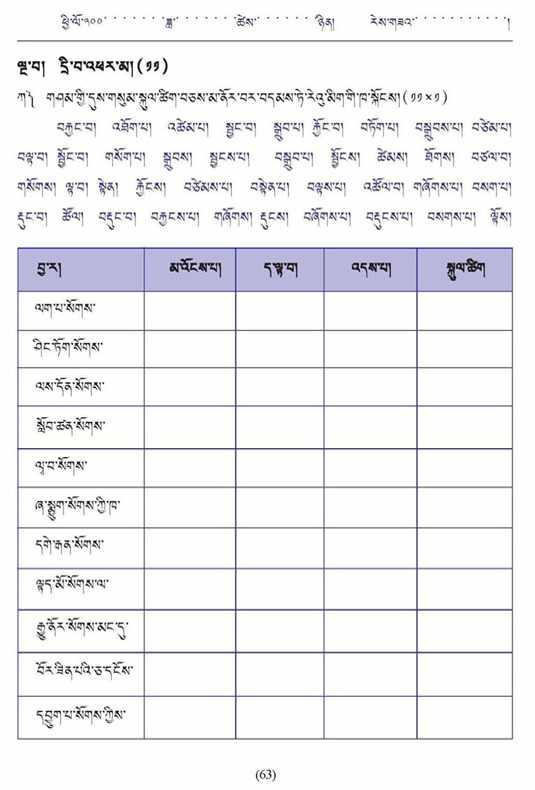 ཕྱི་ལོ་༢༠༠་་་་་་་་་་་་་་་ཟླ་་་་་་་་་་་་་་་་ཚེས་་་་་་་་་་་་་་་ཉིན། རེས་གཟའ་་་་་་་་་་་་་་་་།
ལྔ་བ། དྲི་བ་འཕར་མ། (༡༡)
ཀ༽ གཤམ་གྱི་དུས་གསུམ་སྐུལ་ཚིག་བཅས་མ་ནོར་བར་བདམས་ཏེ་རེའུ་མིག་གི་ཁ་སྐོངས། (༡༡×༡)
བརྐྱང་བ། འཐོག་པ། འཚེམ་པ། སྦྱང་བ། སྒྲུབ་པ། རྐྱོང་བ། བཏོག་པ། བསྒྲུབས་པ། བཙེམ་པ།
བལྟ་བ། སྦྱོང་བ། གསོག་པ། སྒྲུབས། སྦྱངས་པ། བསྒྲུབ་པ། སྦྱོངས། ཚེམས། ཐོགས། བཙལ་བ།
གསོགས། ལྟ་བ། སྟེན། རྐྱོངས། བཙེམས་པ། བསྟེན་པ། བལྟས་པ། འཚོལ་བ། གཞོགས་པ། བསག་པ།
རྡུང་བ། ཚོལ། བརྡུང་བ། བརྐྱངས་པ། གཞོགས། རྡུངས། བཞོགས་པ། བརྡུངས་པ། བསགས་པ། ལྟོས།
བྱ་ར། མ་འོངས་པ། ད་ལྟ་བ། འདས་པ། སྐུལ་ཚིག
ལག་པ་སོགས་
ཤིང་ཏོག་སོགས་
ལས་དོན་སོགས་
སློབ་ཚན་སོགས་
ལྭ་བ་སོགས་
ཞ་སྨྱུག་སོགས་ཀྱི་ཁ་
དགེ་རྒན་སོགས་
ལྟད་མོ་སོགས་ལ་
རྒྱུ་ནོར་སོགས་མང་དུ་
བོར་ཟིན་པའི་ཅ་དངོས་
དབྱུག་པ་སོགས་ཀྱིས་
(63)